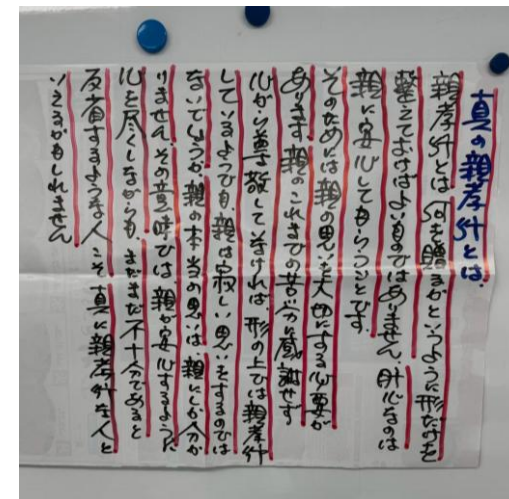 真の親孝行とは、
親孝行とは何を贈るかというように形だけを
整えておけばよいものではありません、肝心なのは
親に安心してもらうことです。
そのためには親の思いを大切にする必要が
あります、親のこれまでの苦労に感謝せず
心から尊敬していなければ、形の上では親孝行
しているようでも、親は寂しい思いをするのでは
ないでしょうか、親の本当の思いは、親にしか分か
りません、その意味では親が安心するように
心を尽くしながらも、まだまだ不十分であると
反省するような人こそ真に親孝行な人と
いえるかもしれません